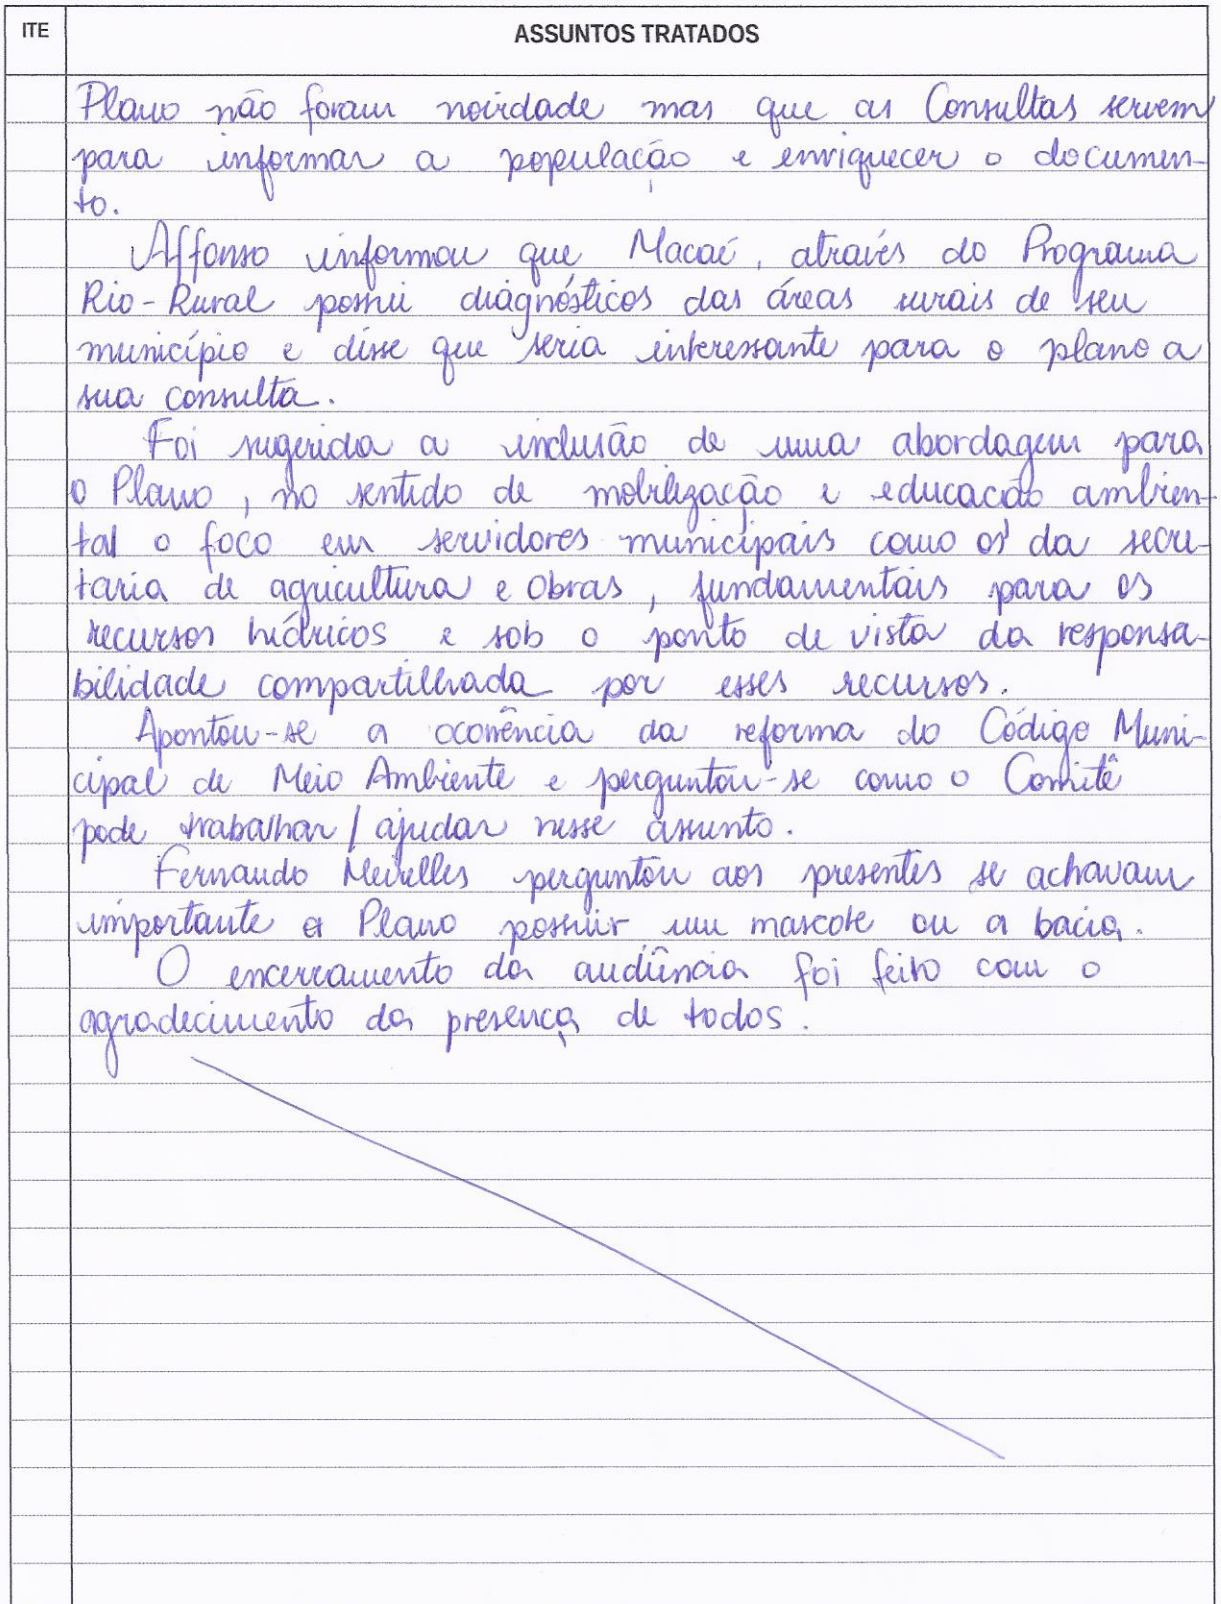 ITE
ASSUNTOS TRATADOS
Plano não foram novidade mas que as Consultas servem
para informar a população e enriquecer o documen-
to.
Affonso informou que Macaé, através do Programa
Rio-Rural possui diagnósticos das áreas rurais de seu
município e disse que seria interessante para o plano a
sua consulta.
Foi sugerida a inclusão de uma abordagem para
o Plano, no sentido de mobilização e educação ambien-
tal o foco em servidores municipais como os da secre-
taria de agricultura e obras, fundamentais para os
recursos hídricos e sob o ponto de vista da responsa-
bilidade compartilhada por esses recursos.
Apontou-se a ocorrência da reforma do Código Muni-
cipal de Meio Ambiente e perguntou-se como o Comitê
pode trabalhar/ajudar nesse assunto.
Fernando Meirelles perguntou aos presentes se achavam
importante o Plano possuir um mascote ou a bacia.
O encerramento da audiência foi feito com o
agradecimento da presença de todos.